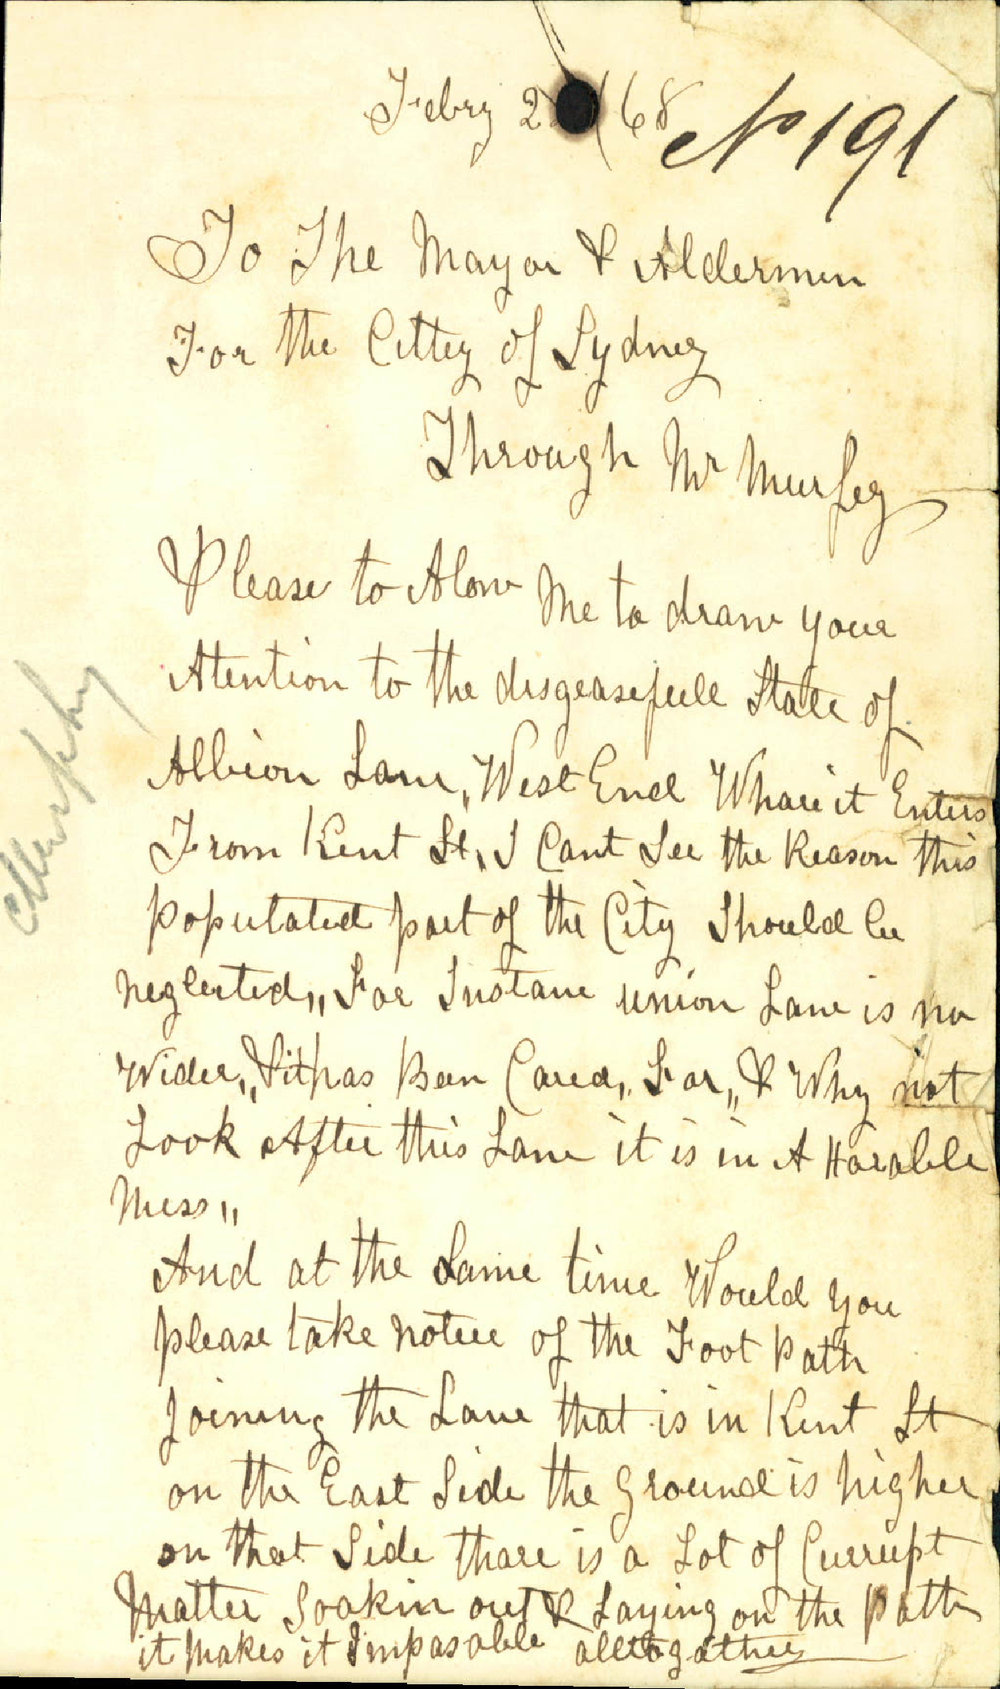 Febry 2 /68 No 191
To The Mayor & Aldermen
For the Cittey of Sydney
Through Mr Murfey
Please to Alow Me to draw your
Atention to the disgeasefull State of
Albion Lane,, West End Whare it Enters
From Kent St,, I Cant See the Reason this
Populated part of the City Should be
neglected,, For Instane union Lane is no
Wider,, & it has Been Cared,, For,, & Why not
Look After this Lane it is in A Horable
Mess,,
And at the Same time Would you
please take notice of the Foot Path
Joining the Lane that is in Kent St
on the East Side the ground is higher
on that Side thare is a Lot of Currupt
Matter Soakin out & Laying on the Path
it Makes it Impasable alltogather
Murphy